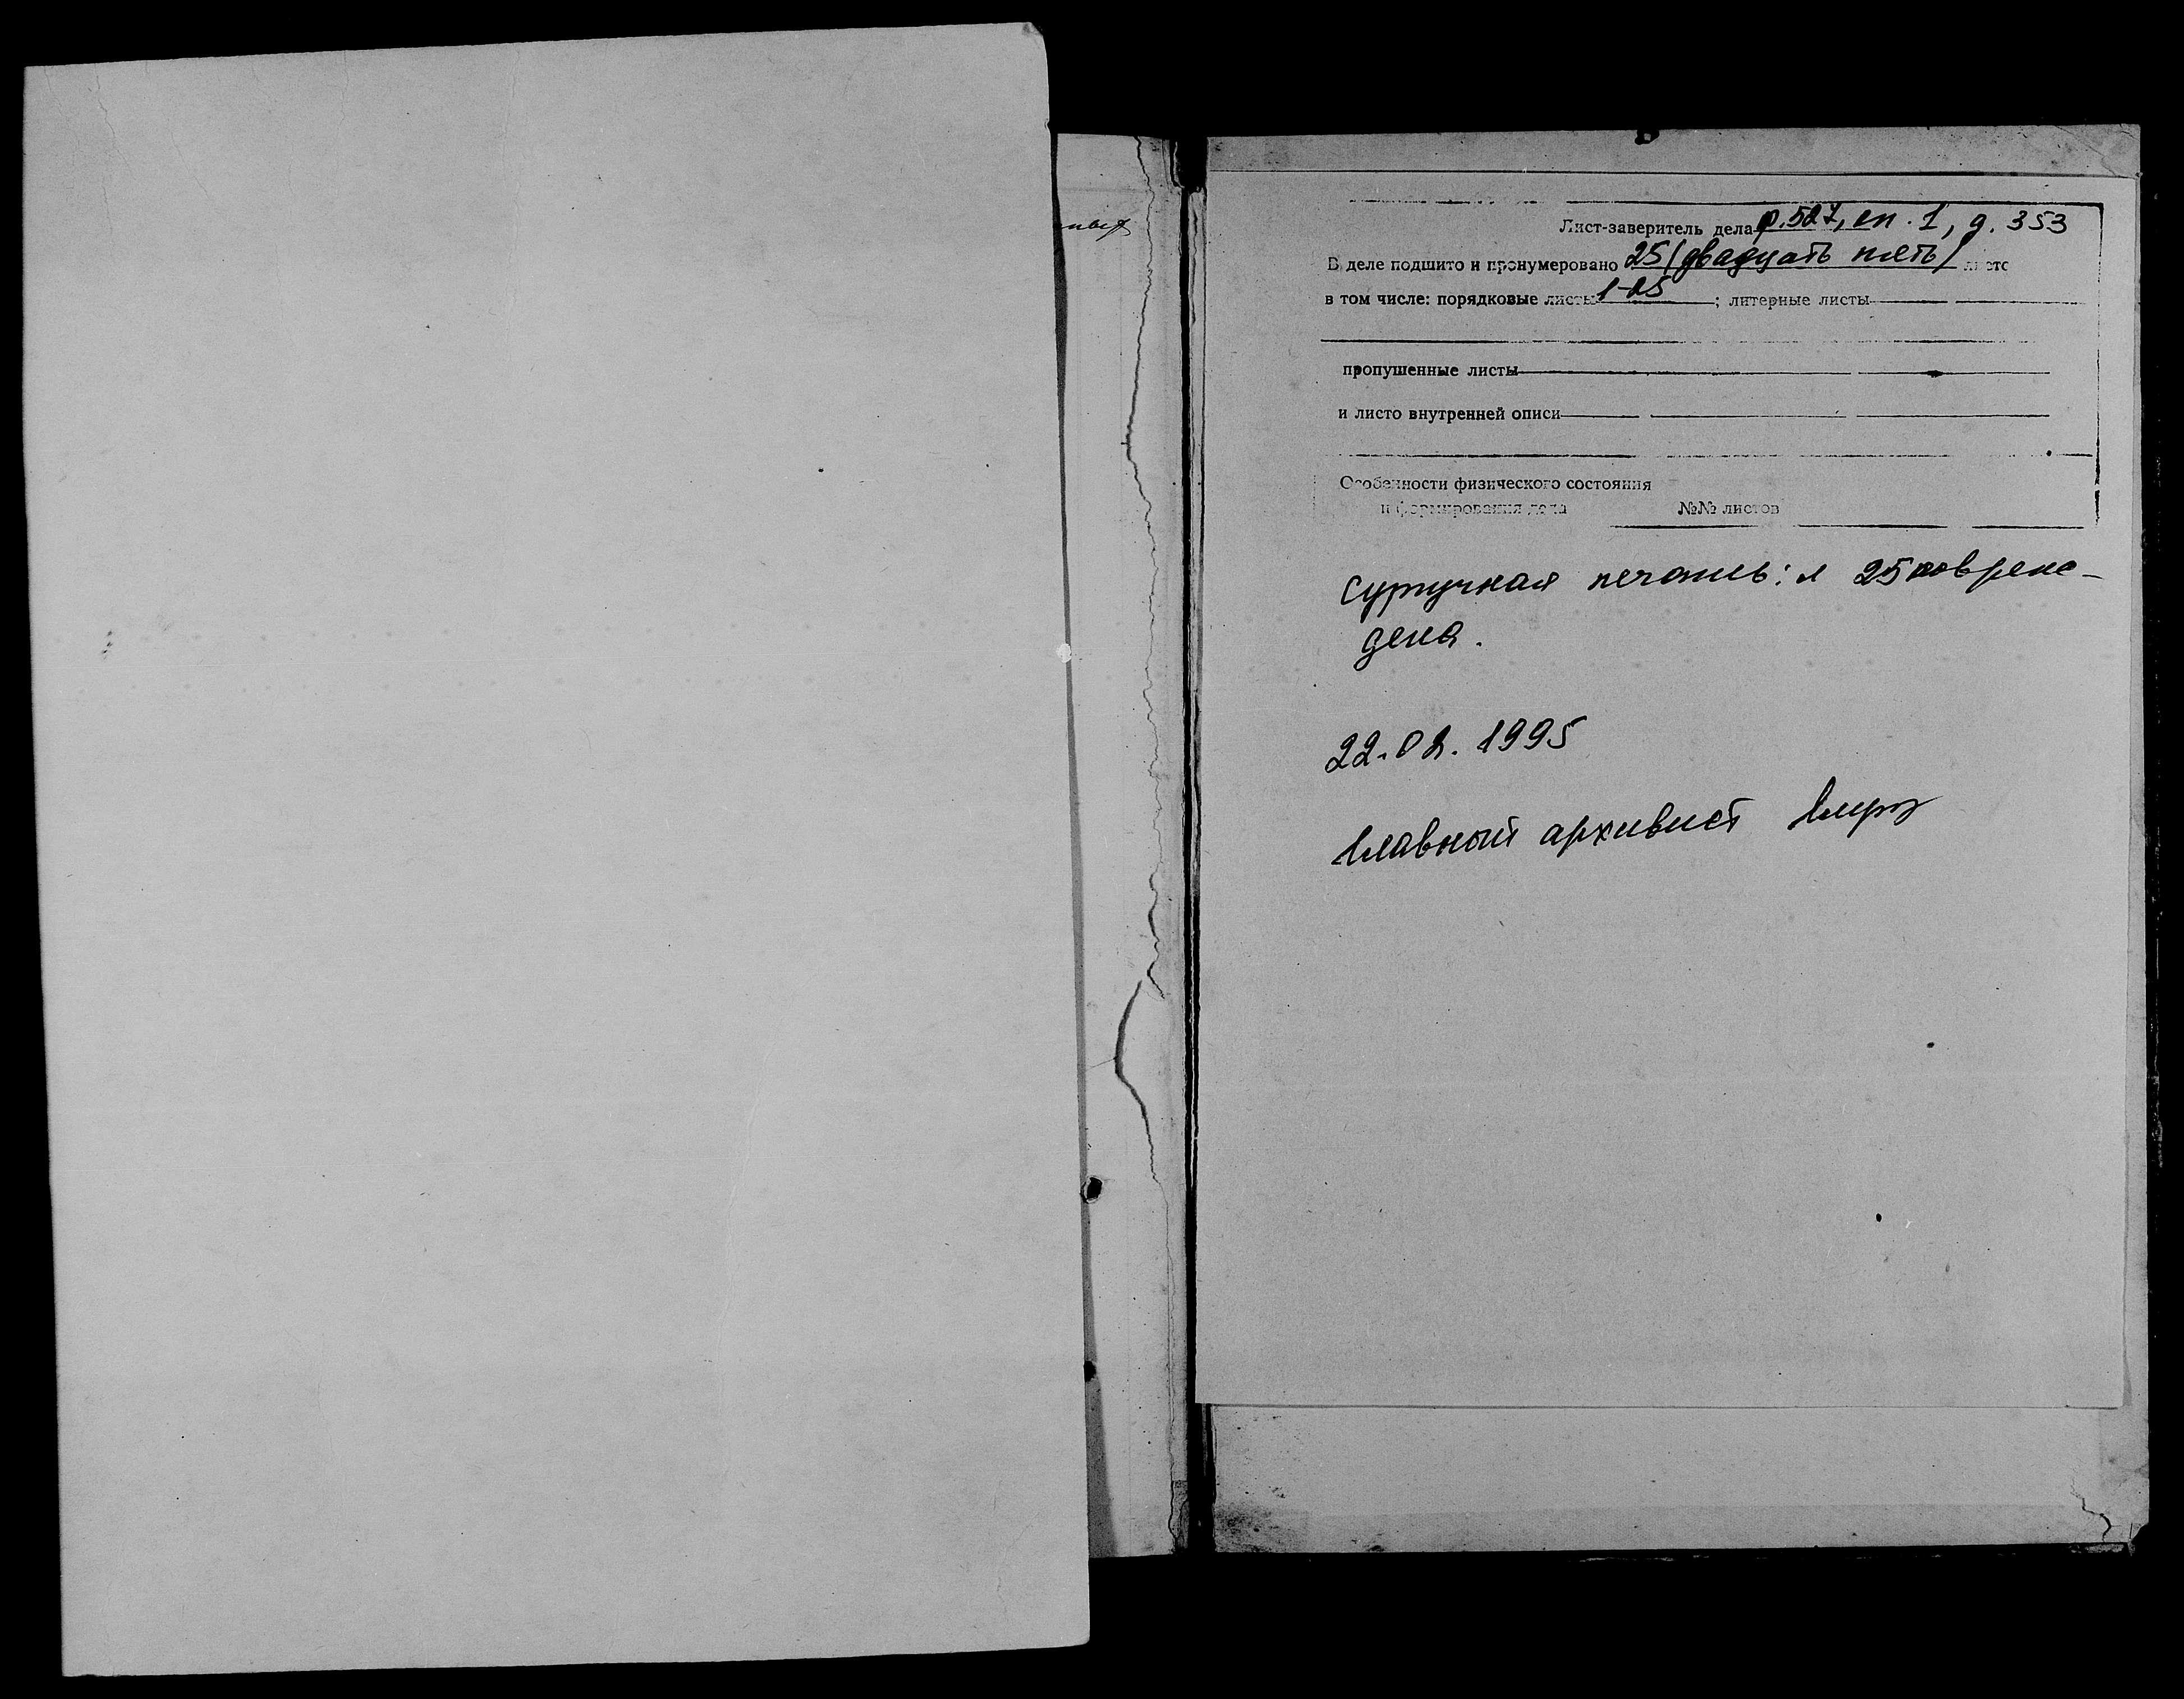 Лист-заверитель дела ф.527, оп. 1, д. 353
В деле подшито и пронумеровано 25 (двадцать пять) листо
в том числе: порядковые листы 1-25 ; литерные листы
пропушенные листы
и листо внутренней описи
Особенности физического состояния
и формирования дела №№ листов
Сургучная печать: л 25 повреж-
дена.
22.02.1995
Главный архивист